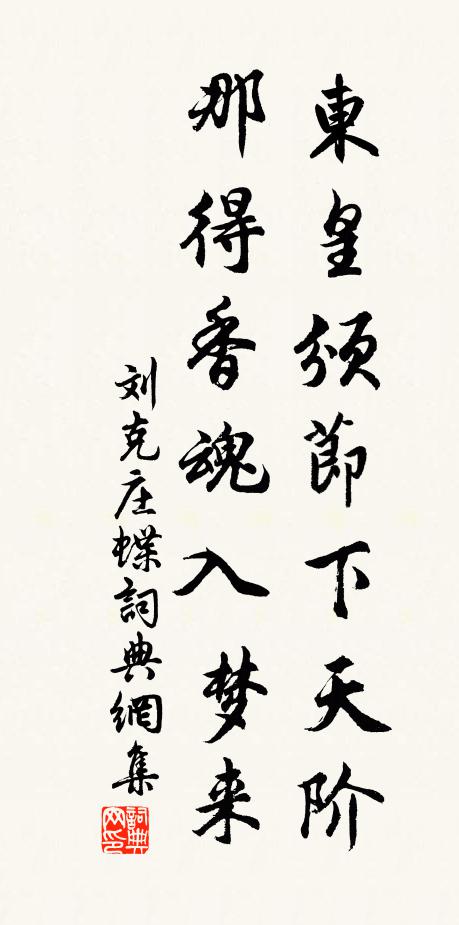 東皇頒節下天阶
那得香魂入梦来
刘克庄蝶詞典網集
詞典网印